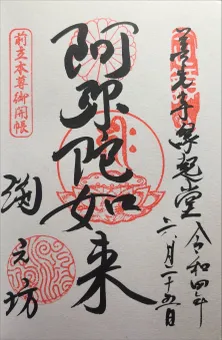 善光寺縁起堂 令和四年
六月二十五日
阿弥陀如来
前立本尊御開帳
渕之坊